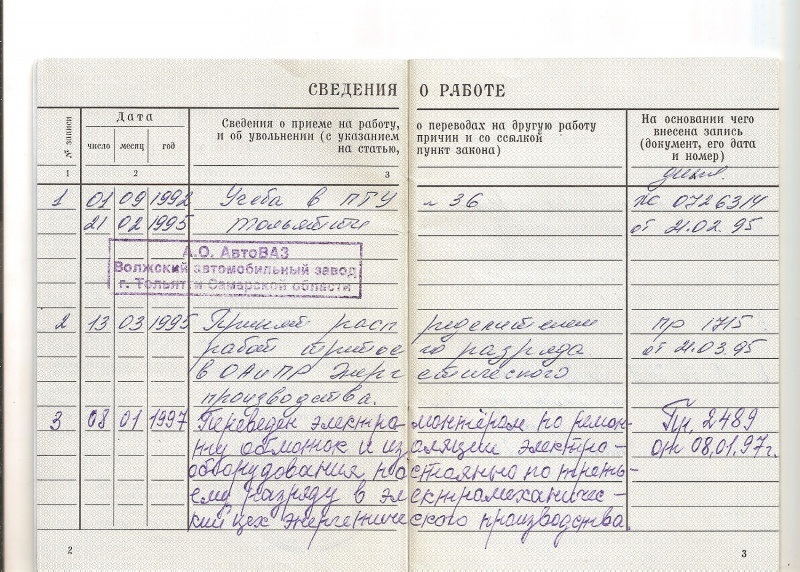 СВЕДЕНИЯ О РАБОТЕ
№ записи
Дата
Сведения о приеме на работу, о переводах на другую работу
и об увольнении (с указанием причин и со ссылкой
на статью, пункт закона)
На основании чего
внесена запись
(документ, его дата
и номер)
число месяц год
1 2 3
1 01 09 1992 Учеба в ПТУ № 36 0726314
21 02 1995 Тольятти от 21.02.95
А.О. АвтоВАЗ
Волжский автомобильный завод
г. Тольятти Самарской области
2 13 03 1995 Принят распределителем пр 1715
работ третьего разряда от 21.03.95
в ОАиПР Энергетического
производства.
3 08 01 1997 Переведён электромонтёром по ремон- Пр. 2489
ту обмоток и изоляции электро- от 08.01.97г.
оборудования постоянно по треть-
ему разряду в электромеханичес-
кий цех Энергетического производства.
2 3